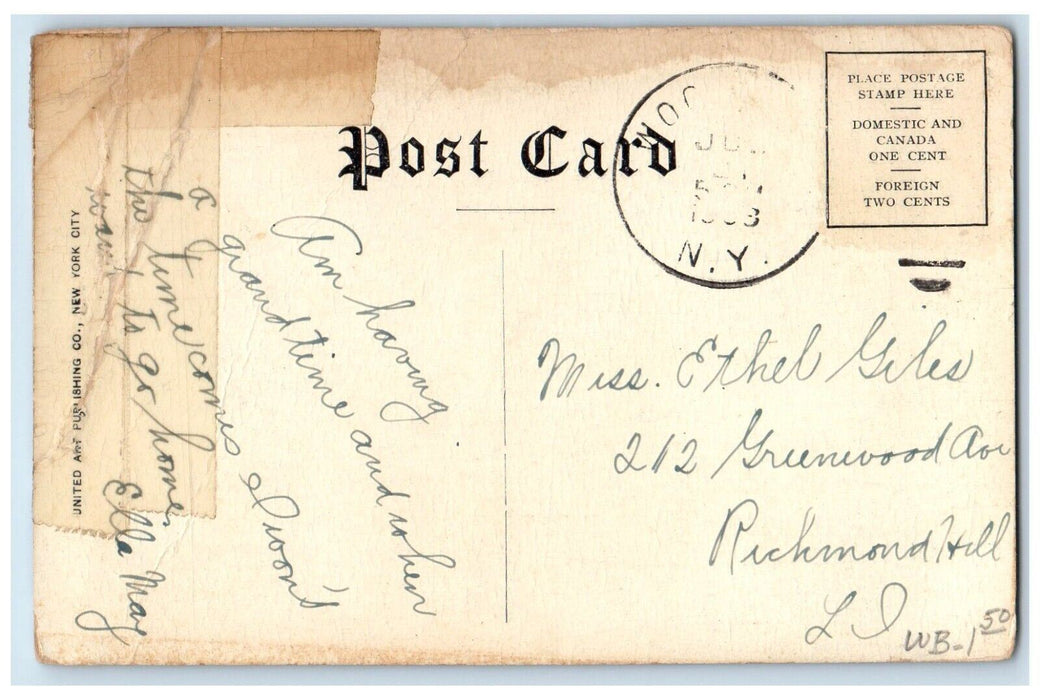 Post Card
PLACE POSTAGE
STAMP HERE
DOMESTIC AND
CANADA
ONE CENT
FOREIGN
TWO CENTS
N.Y.
Am having
a
grand time and when
the time comes I won't
want to go home.
Ella May
Miss. Ethel Giles
212 Greenwood Ave
Richmond Hill
L I
WB-1 50
UNITED ART PUBLISHING CO., NEW YORK CITY